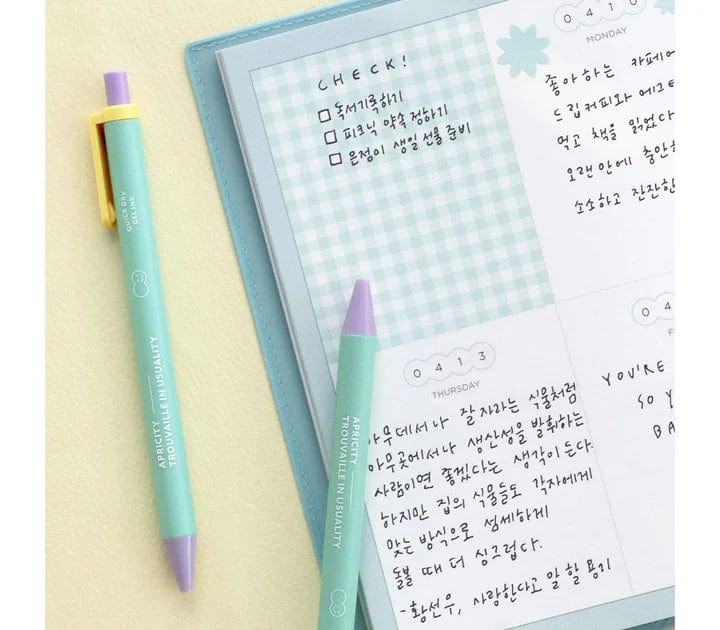 CHECK!
□ 독서기록하기
□ 피크닉 약속 정하기
□ 은정이 생일 선물 준비
0410
MONDAY
좋아하는 카페에
드립커피와 에그타
먹고 책을 읽었다
오랜만에 충만한
소소하고 잔잔한
0413
THURSDAY
아무데서나 잘 자라는 식물처럼
아무곳에서나 생산성을 발휘하는
사람이면 좋겠다는 생각이 든다.
하지만 집의 식물들도 각자에게
맞는 방식으로 섬세하게
돌볼 때 더 싱그럽다.
-황선우, 사랑한다고 말할 용기
0 4
F
YOU'RE
SO Y
BA
QUICK DRY
GEL INK
APRICITY
TROUVAILLE IN USUALITY
APRICITY
TROUVAILLE IN USUALITY